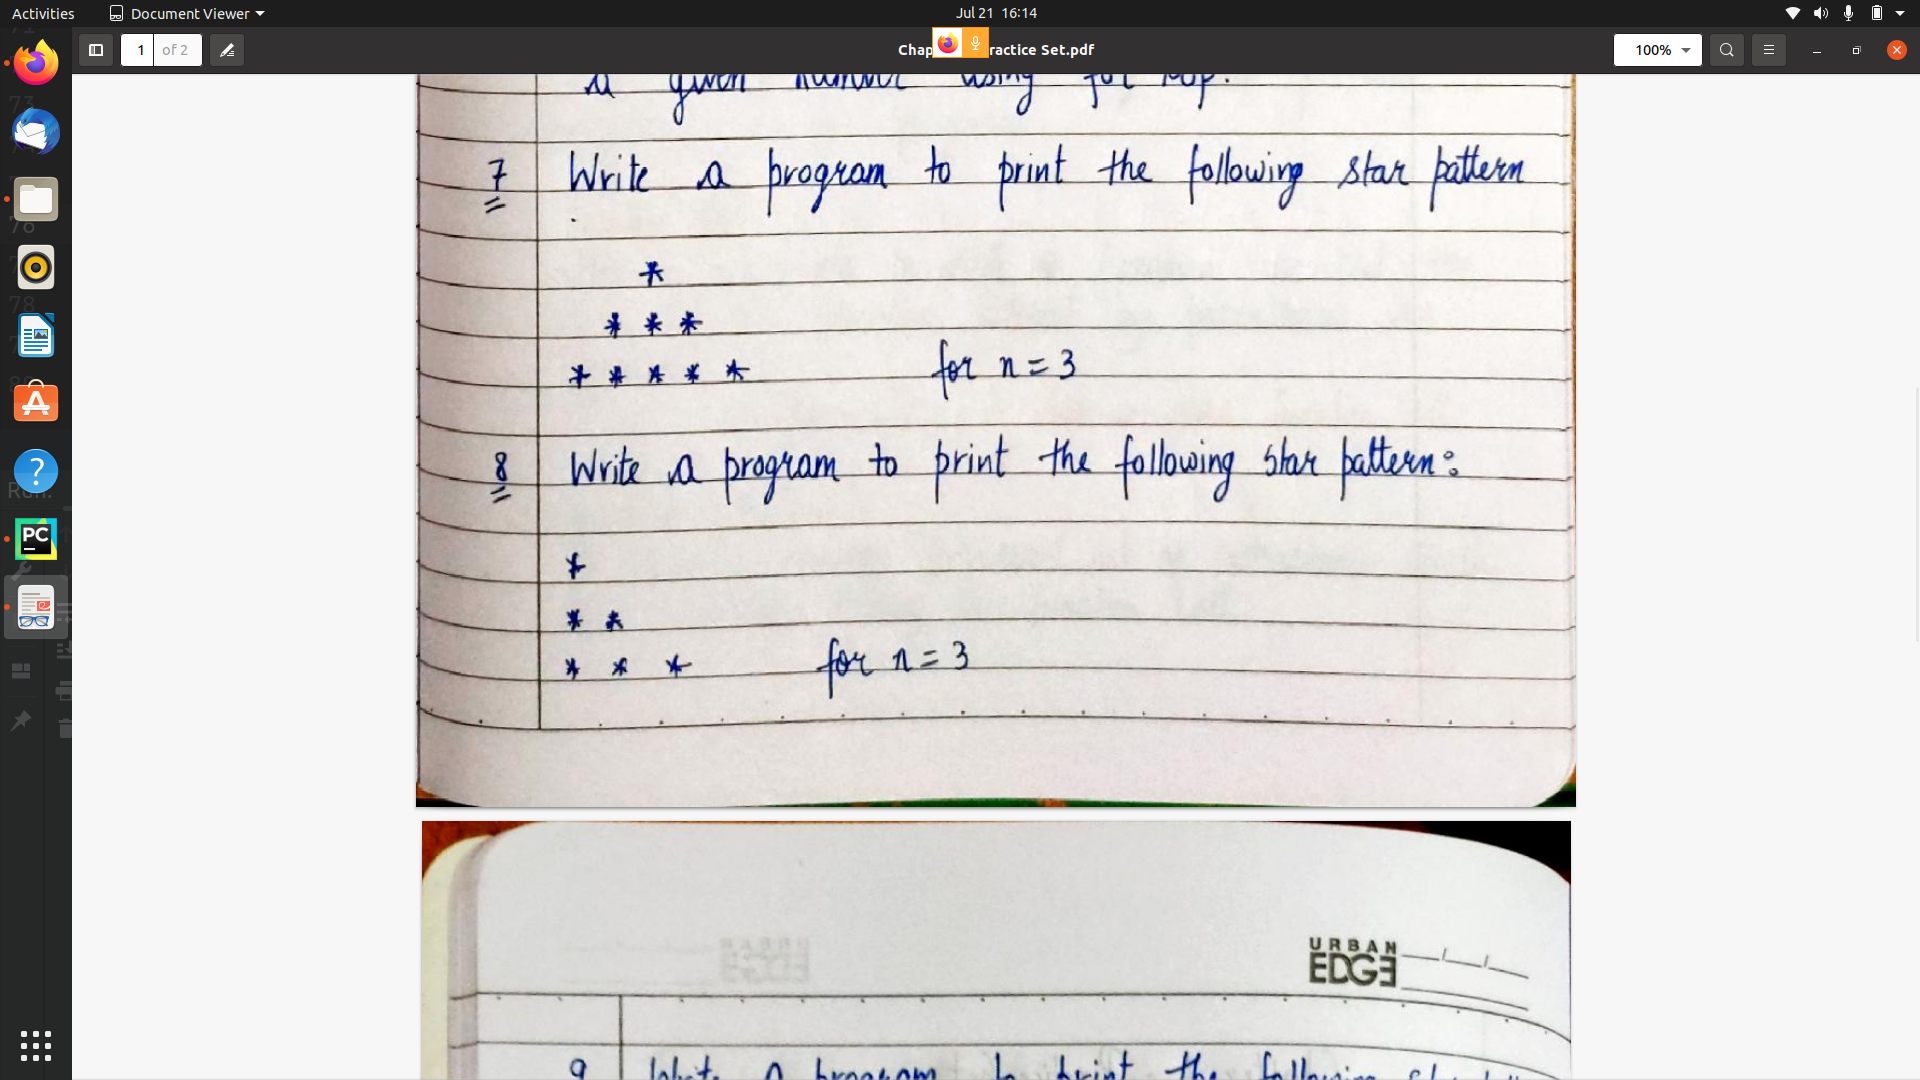 Activities
Document Viewer
Jul 21 16:14
1 of 2
Chap
ractice Set.pdf
100%
a given number using for loop.
7 Write a program to print the following star pattern
*
* * *
* * * * * for n = 3
8 Write a program to print the following star pattern:
*
* *
* * * for n = 3
PC
URBAN
EDGE
9 Write a program to print the following